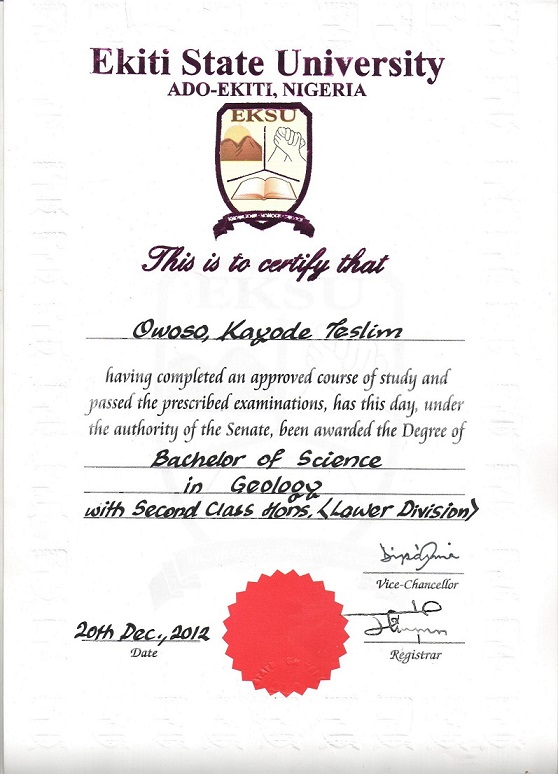 Ekiti State University
ADO-EKITI, NIGERIA
EKSU
This is to certify that
Owoso, Kayode Teslim
having completed an approved course of study and
passed the prescribed examinations, has this day, under
the authority of the Senate, been awarded the Degree of
Bachelor of Science
in Geology
with Second Class Hons, (Lower Division)
Vice-Chancellor
20th Dec., 2012
Date
Registrar